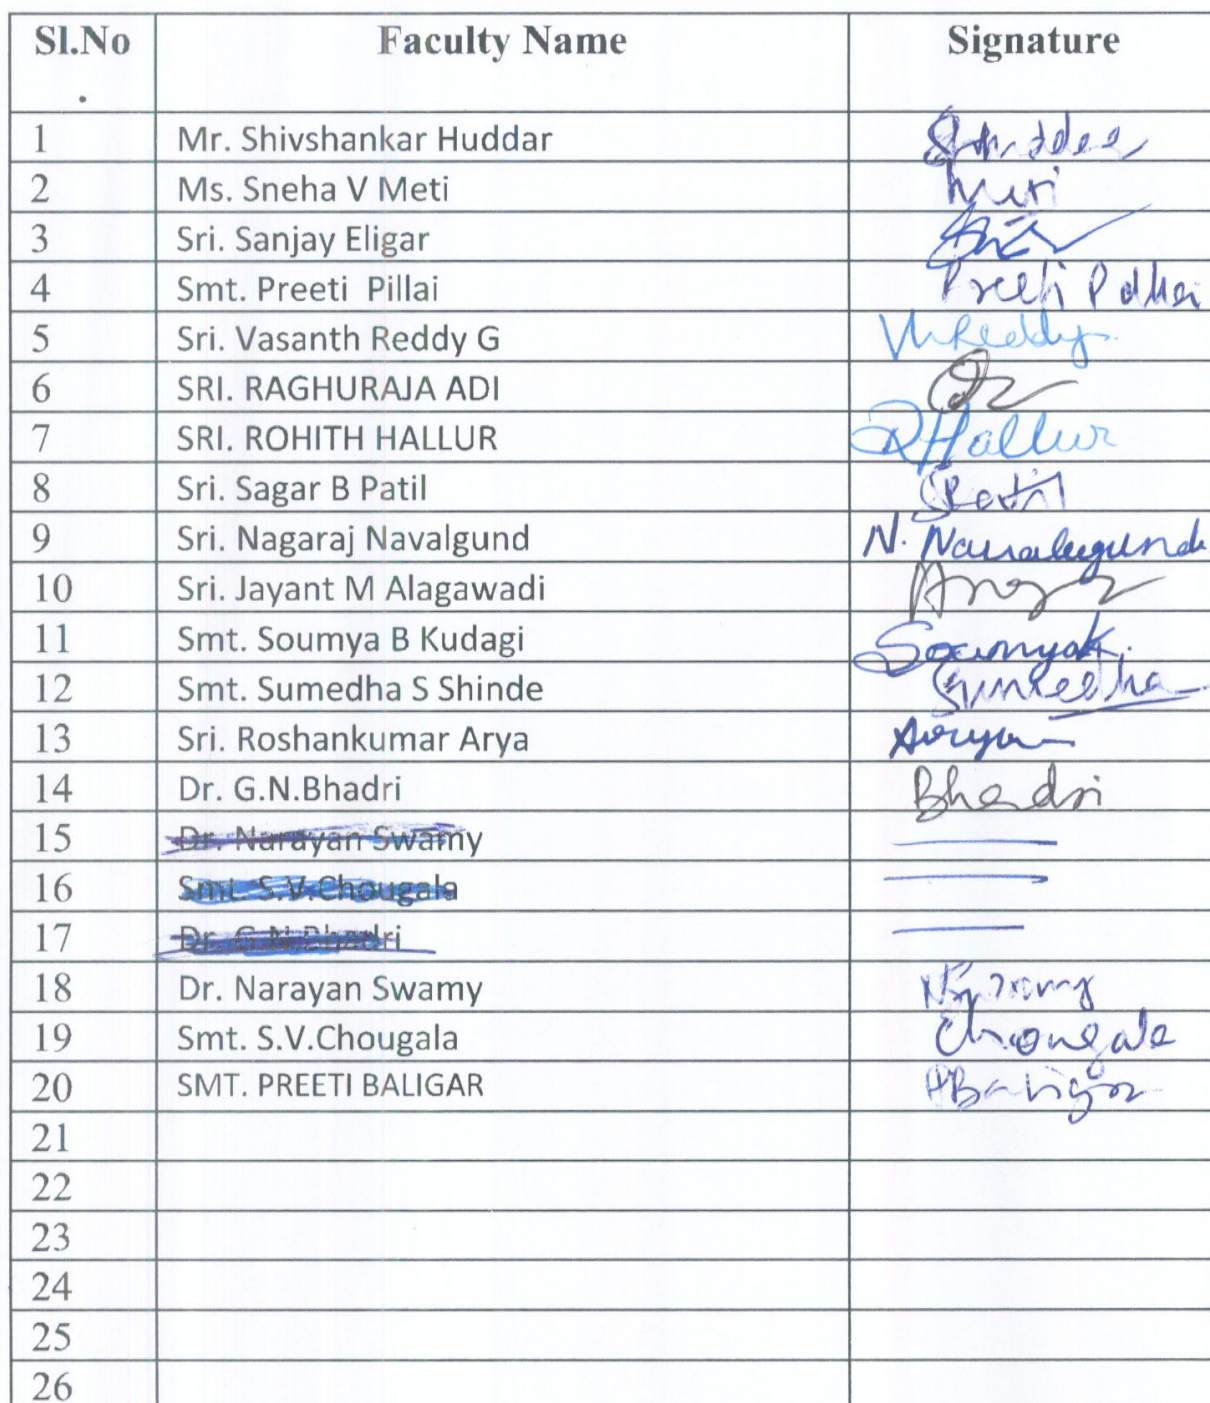 Sl.No Faculty Name Signature
.
1 Mr. Shivshankar Huddar
2 Ms. Sneha V Meti Meti
3 Sri. Sanjay Eligar
4 Smt. Preeti Pillai Preeti Pillai
5 Sri. Vasanth Reddy G VhReddy
6 SRI. RAGHURAJA ADI
7 SRI. ROHITH HALLUR RHallur
8 Sri. Sagar B Patil SPatil
9 Sri. Nagaraj Navalgund N. Navalugund
10 Sri. Jayant M Alagawadi
11 Smt. Soumya B Kudagi Soumyak.
12 Smt. Sumedha S Shinde Sumeedha
13 Sri. Roshankumar Arya Arya
14 Dr. G.N.Bhadri Bhadri
15 Dr. Narayan Swamy
16 Smt. S.V.Chougala
17 Dr. G.N.Bhadri
18 Dr. Narayan Swamy
19 Smt. S.V.Chougala Chougale
20 SMT. PREETI BALIGAR PBaligar
21
22
23
24
25
26